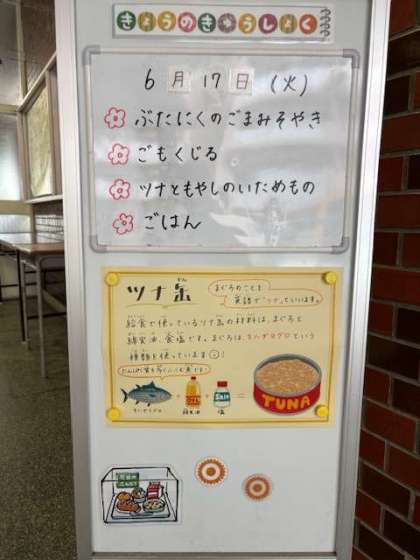 きょうのきゅうしょく
6月17日(火)
ぶたにくのごまみそやき
ごもくじる
ツナともやしのいためもの
ごはん
ツナ缶
まぐろのことを
英語で「ツナ」といいます。
給食で使っているツナ缶の材料は、まぐろと
綿実油、食塩です。まぐろは、キハダマグロという
種類を使っています!
たんぱく質を多くふくむ魚です!
キハダマグロ
綿実油
SALT
塩
TUNA